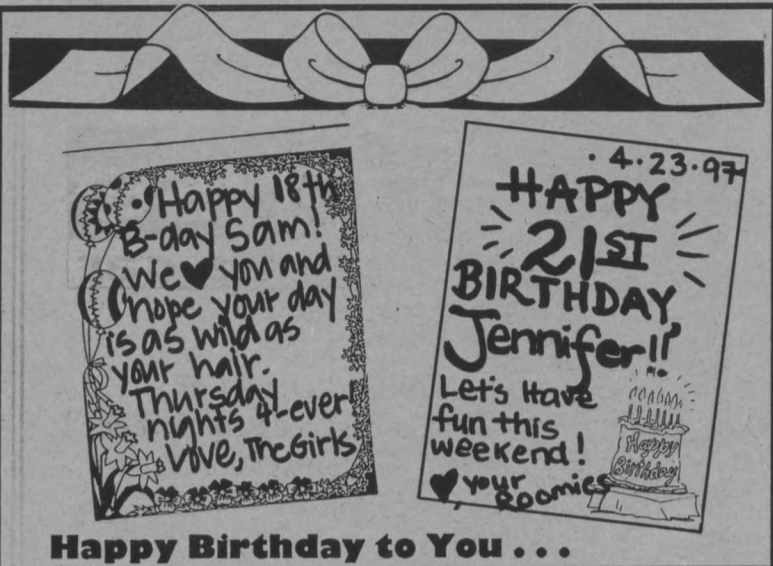 Happy 18th
B-day Sam!
We ♥ you and
hope your day
is as wild as
your hair.
Thursday
nights 4-ever!
Love, The Girls
4.23.97
HAPPY
21ST
BIRTHDAY
Jennifer!!
Let's Have
fun this
weekend!
♥ your
Roomies
Happy
Birthday
Happy Birthday to You . . .